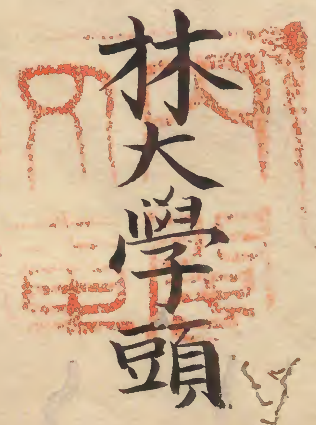 林大學頭